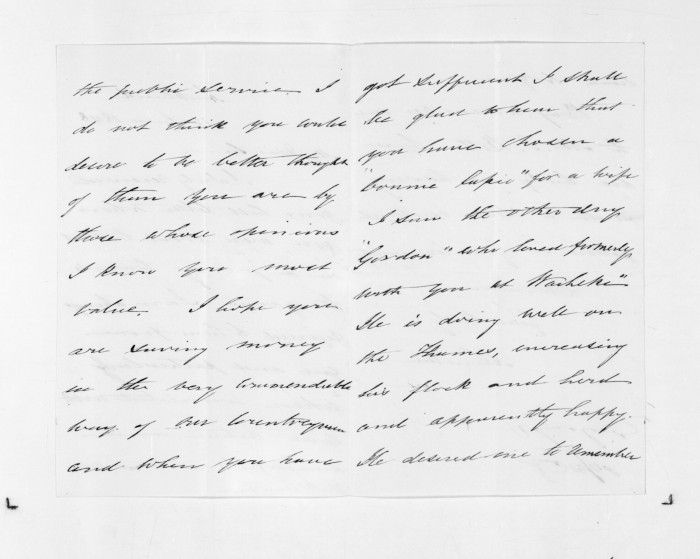 the public service. I
do not think you could
desire to be better thought
of than you are by
those whose opinions
I know you most
value. I hope you
are saving money
in the very commendable
way of our countrymen
and when you have
got sufficient I shall
be glad to hear that
you have chosen a
"bonnie lassie" for a wife
I saw the other day
"Gordon" who lived formerly
with you at Waiheke"
He is doing well on
the Thames, increasing
his flock and herd
and apparently happy.
He desired me to remember